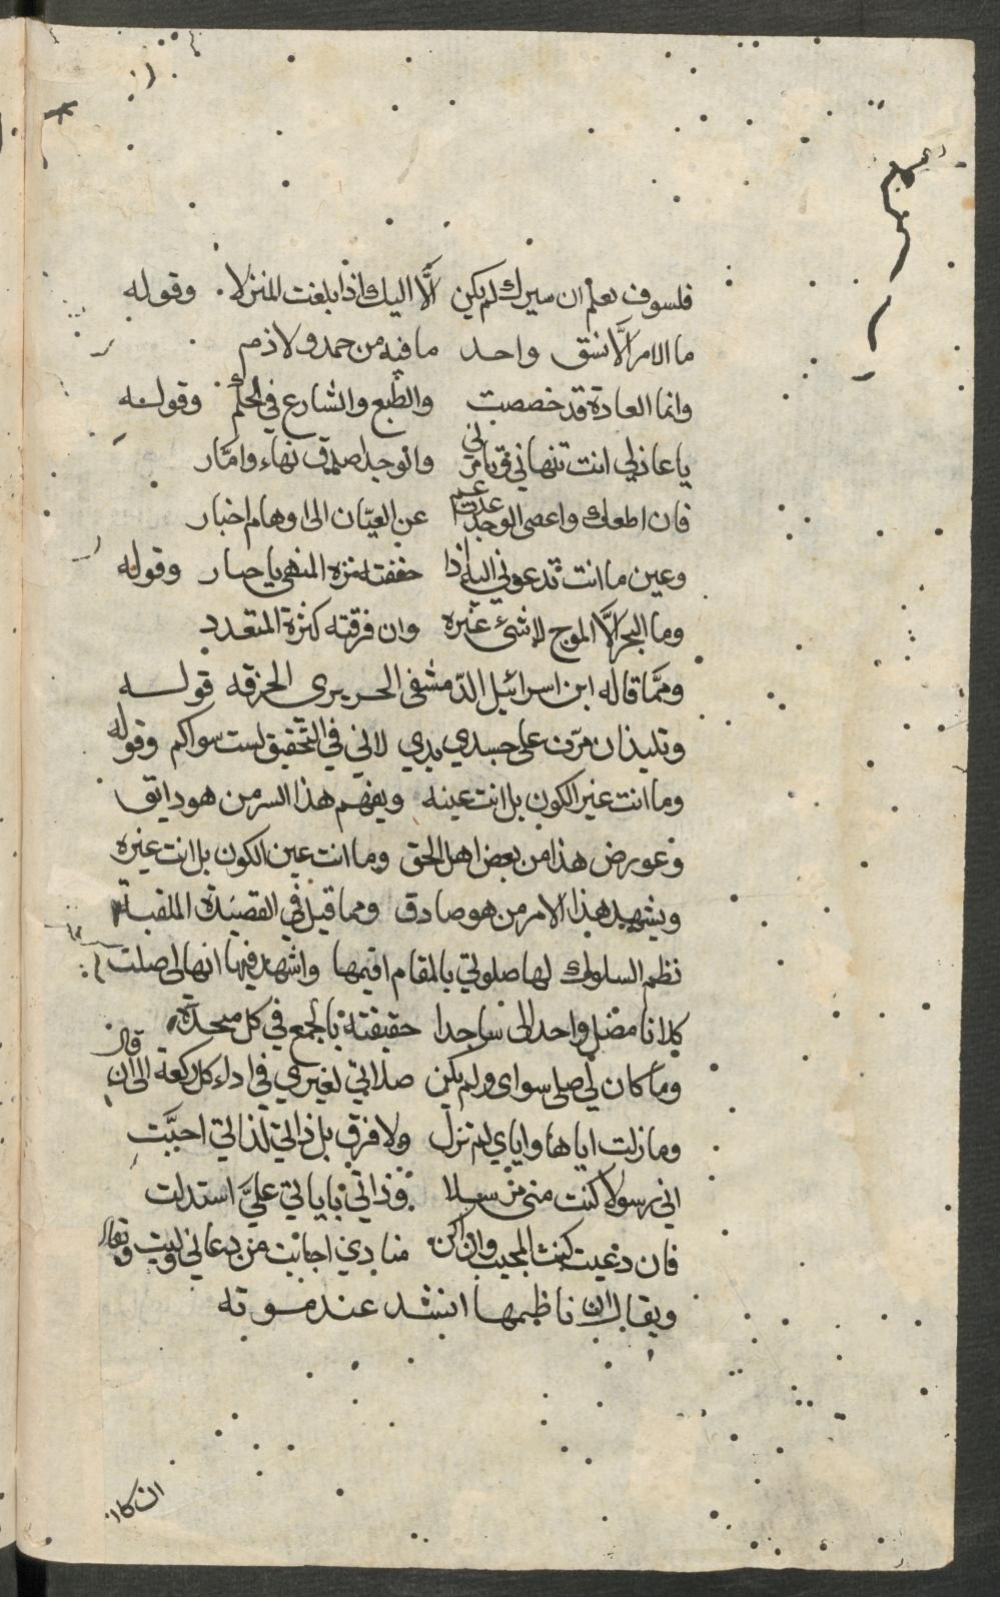 فلسوف تعلم ان سيرك لم يكن الّا اليك اذا بلغت المنزلا . وقوله
ما الامر الّا نسق واحد ما فيه من حمد ولا ذم
وانما العادة قد خصصت والطبع والشارع في الحكم وقوله
يا عاذلي انت تنهاني وتامرني والوجد اصدق نهاء وامّار
فان اطعك واعصى الوجد عدت عم عن العيّان الى اوهام اخبار
وعين ما انت تدعوني اليه اذا حققته تره المنهي يا جار وقوله
وما البحر الّا الموج لا شيء غيره وان فرقته كثرة المتعدد
وممّا قاله ابن اسرائيل الدّمشقي الحريري الخرقه قوله
وتلتذ ان مرّت على جسدي يدي لاني في التّحقيق لست سواكم وقوله
وما انت غير الكون بل انت عينه ويفهم هذا السر من هو دايق
وعورض هذا من بعض اهل الحق وما انت عين الكون بل انت غيره
ويشهد هذا الامر من هو صادق ومما قيل في القصيدة الملقبة
نظم السلوك لها صلوتي بالمقام اقيمها واشهد فيها انها لى صلت
كلانا مصل واحد الى ساجدا حقيقته بالجمع في كل سجدة
وما كان لي صلى سواى ولم يكن صلاتي لغيري في اداء كل ركعة الى ان قال
وما زلت اياها واياي لم تزل ولا فرق بل ذاتي لذاتي احبّت
الي رسولا كنت مني مرسلا وذاتي باياتي عليّ استدلت
فان دعيت كنت المجيب وان اكن منادي اجابت من دعاني ولبت
ويقال ان ناظمها انشد عند موته
ان كان